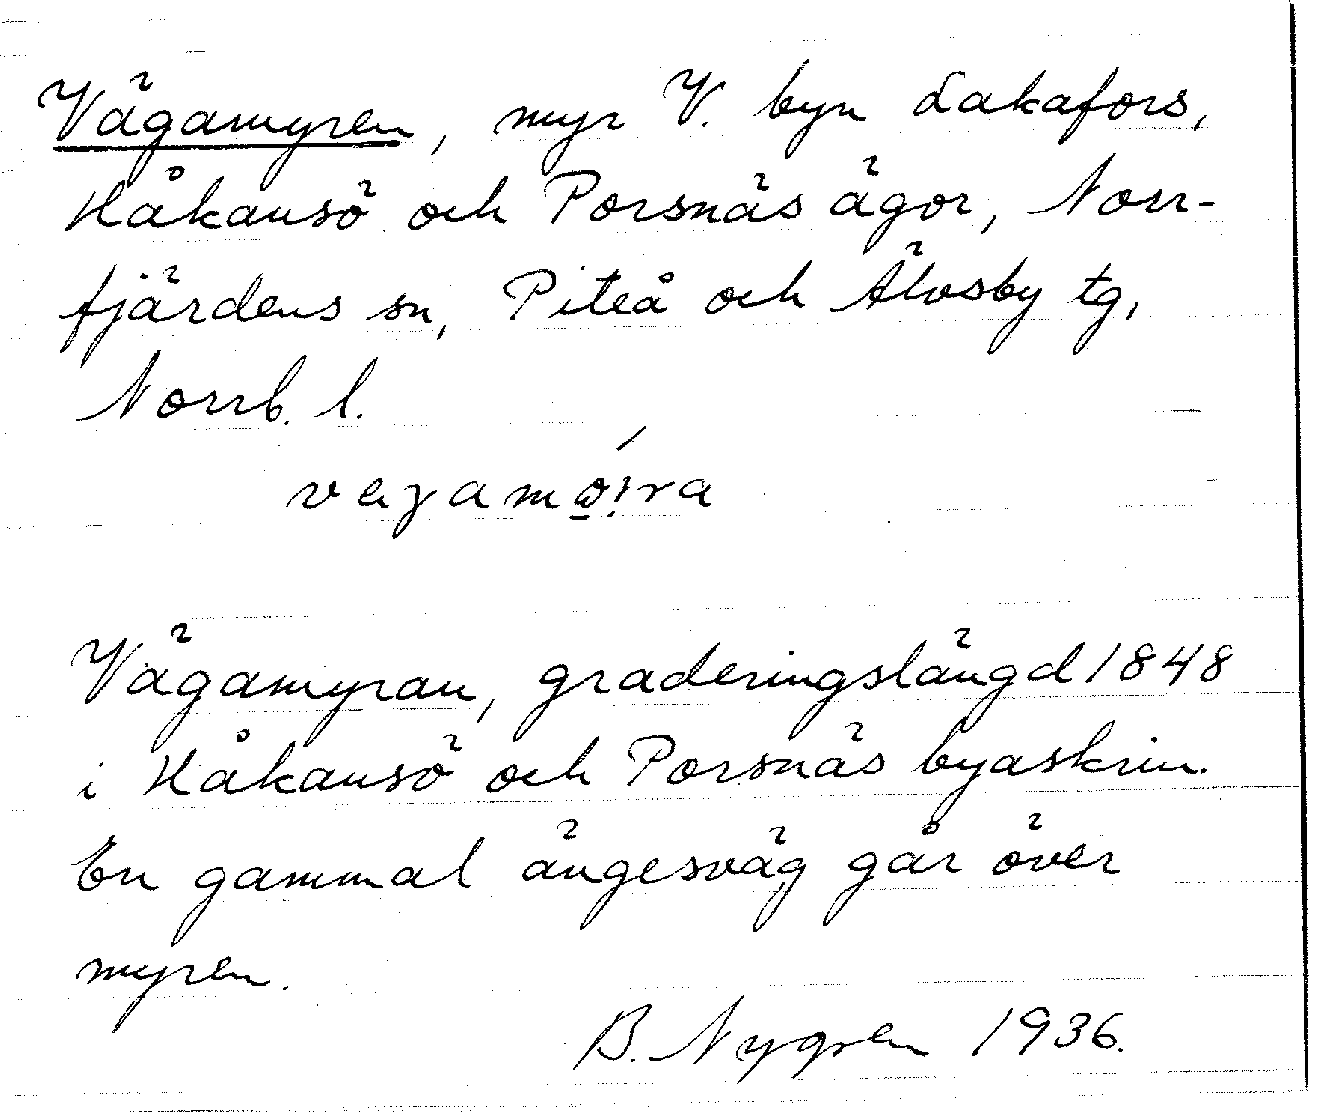 Vägamyren, myr V. byn Lakafors,
Håkansö och Porsnäs ägor, Norr-
fjärdens sn, Piteå och Älvsby tg,
Norrb. l.
Vägamyran, graderingslängd 1848
i Håkansö och Porsnäs byaskrin.
En gammal ängesväg går över
myren.
B. Nygren 1936.